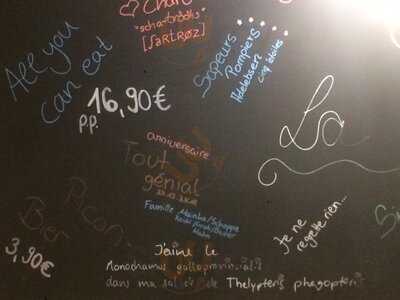 All you
can eat
16,90€
p.p.
Chart
"schartrööhs"
[ʃaRtRøz]
Sapeurs
Pompiers
Adelebsen
cinq étoiles
La
anniversaire
Tout
génial
Famille
Picon
Bier
3,90€
Je ne
regrette rien...
J'aime le
Monochamus galloprovincialis
dans ma salade de Thelypteris phegopteris